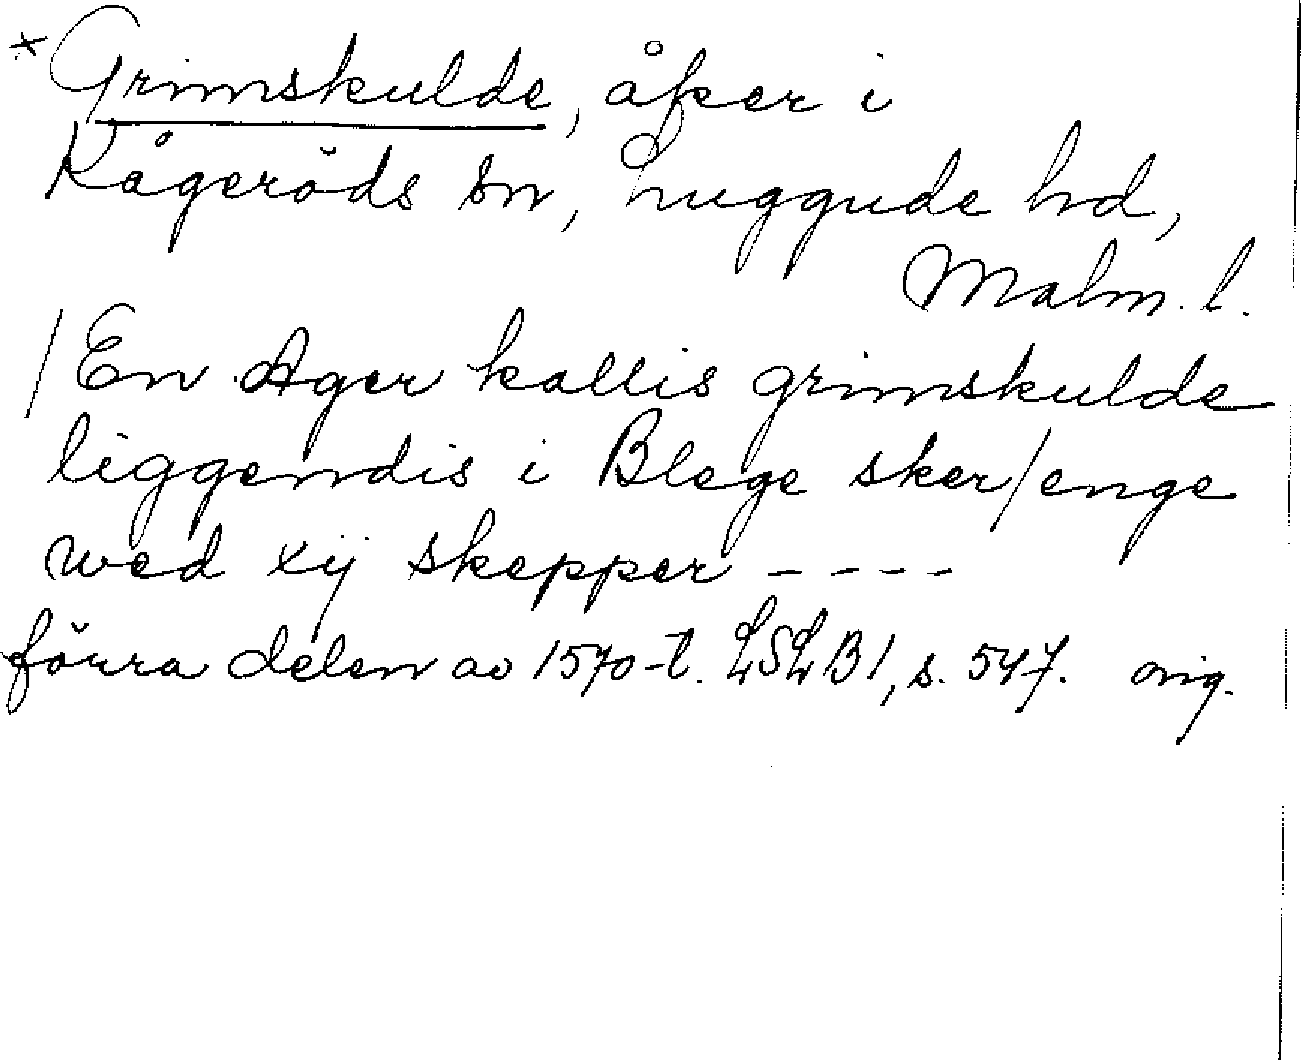 * Grimskulde, åker i
Kågeröds sn, Luggude hd,
Malm. l.
/En Ager kallis grimskulde
liggendis i Blege sker/enge
wed xij skepper - - - -
förra delen av 1570-t. LSLB1, s. 547. orig.